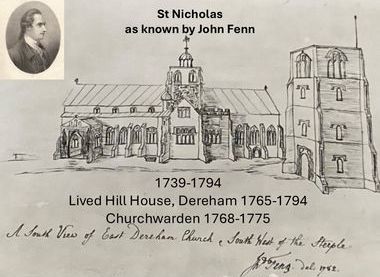 St Nicholas
as known by John Fenn
1739-1794
Lived Hill House, Dereham 1765-1794
Churchwarden 1768-1775
A South View of East Dereham Church & South West of the Steeple
Fenn del. 1762.